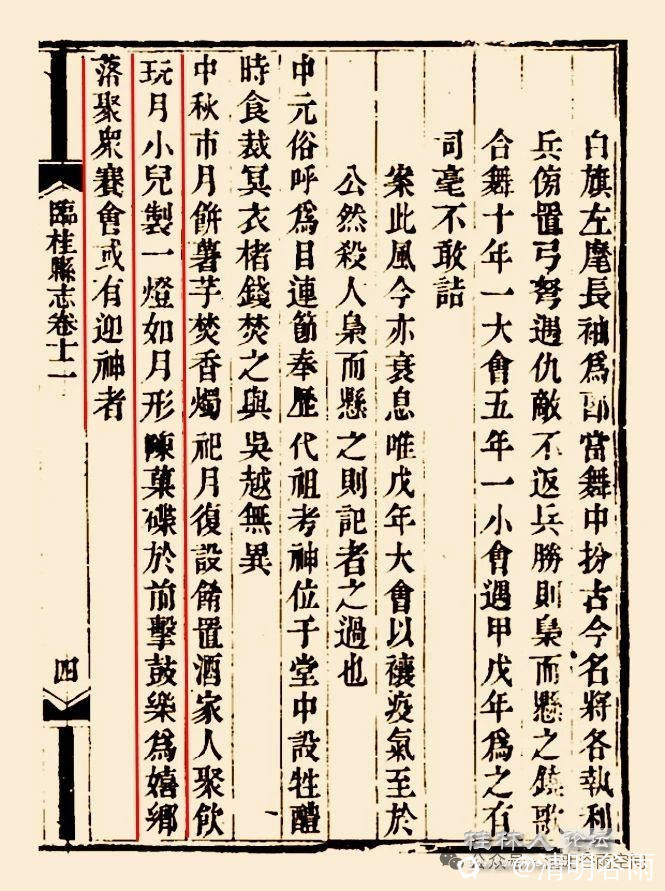 白旗左麾長袖爲部當舞中扮古今名將各執利
兵傍置弓弩遇仇敵不返兵勝則梟而懸之鐃歌
合舞十年一大會五年一小會遇甲戊年爲之有
司毫不敢詰
案此風今亦衰息唯戊年大會以禳疫氣至於
公然殺人梟而懸之則記者之過也
中元俗呼爲目連節奉歷代祖考神位于堂中設牲醴
時食裁冥衣楮錢焚之與吳越無異
中秋市月餅薯芋焚香燭祀月復設餚置酒家人聚飲
玩月小兒製一燈如月形陳菓碟於前擊鼓樂爲嬉鄉
落聚衆賽會或有迎神者
臨桂縣志卷十一
四
桂林人论坛
公众号
清明谷雨